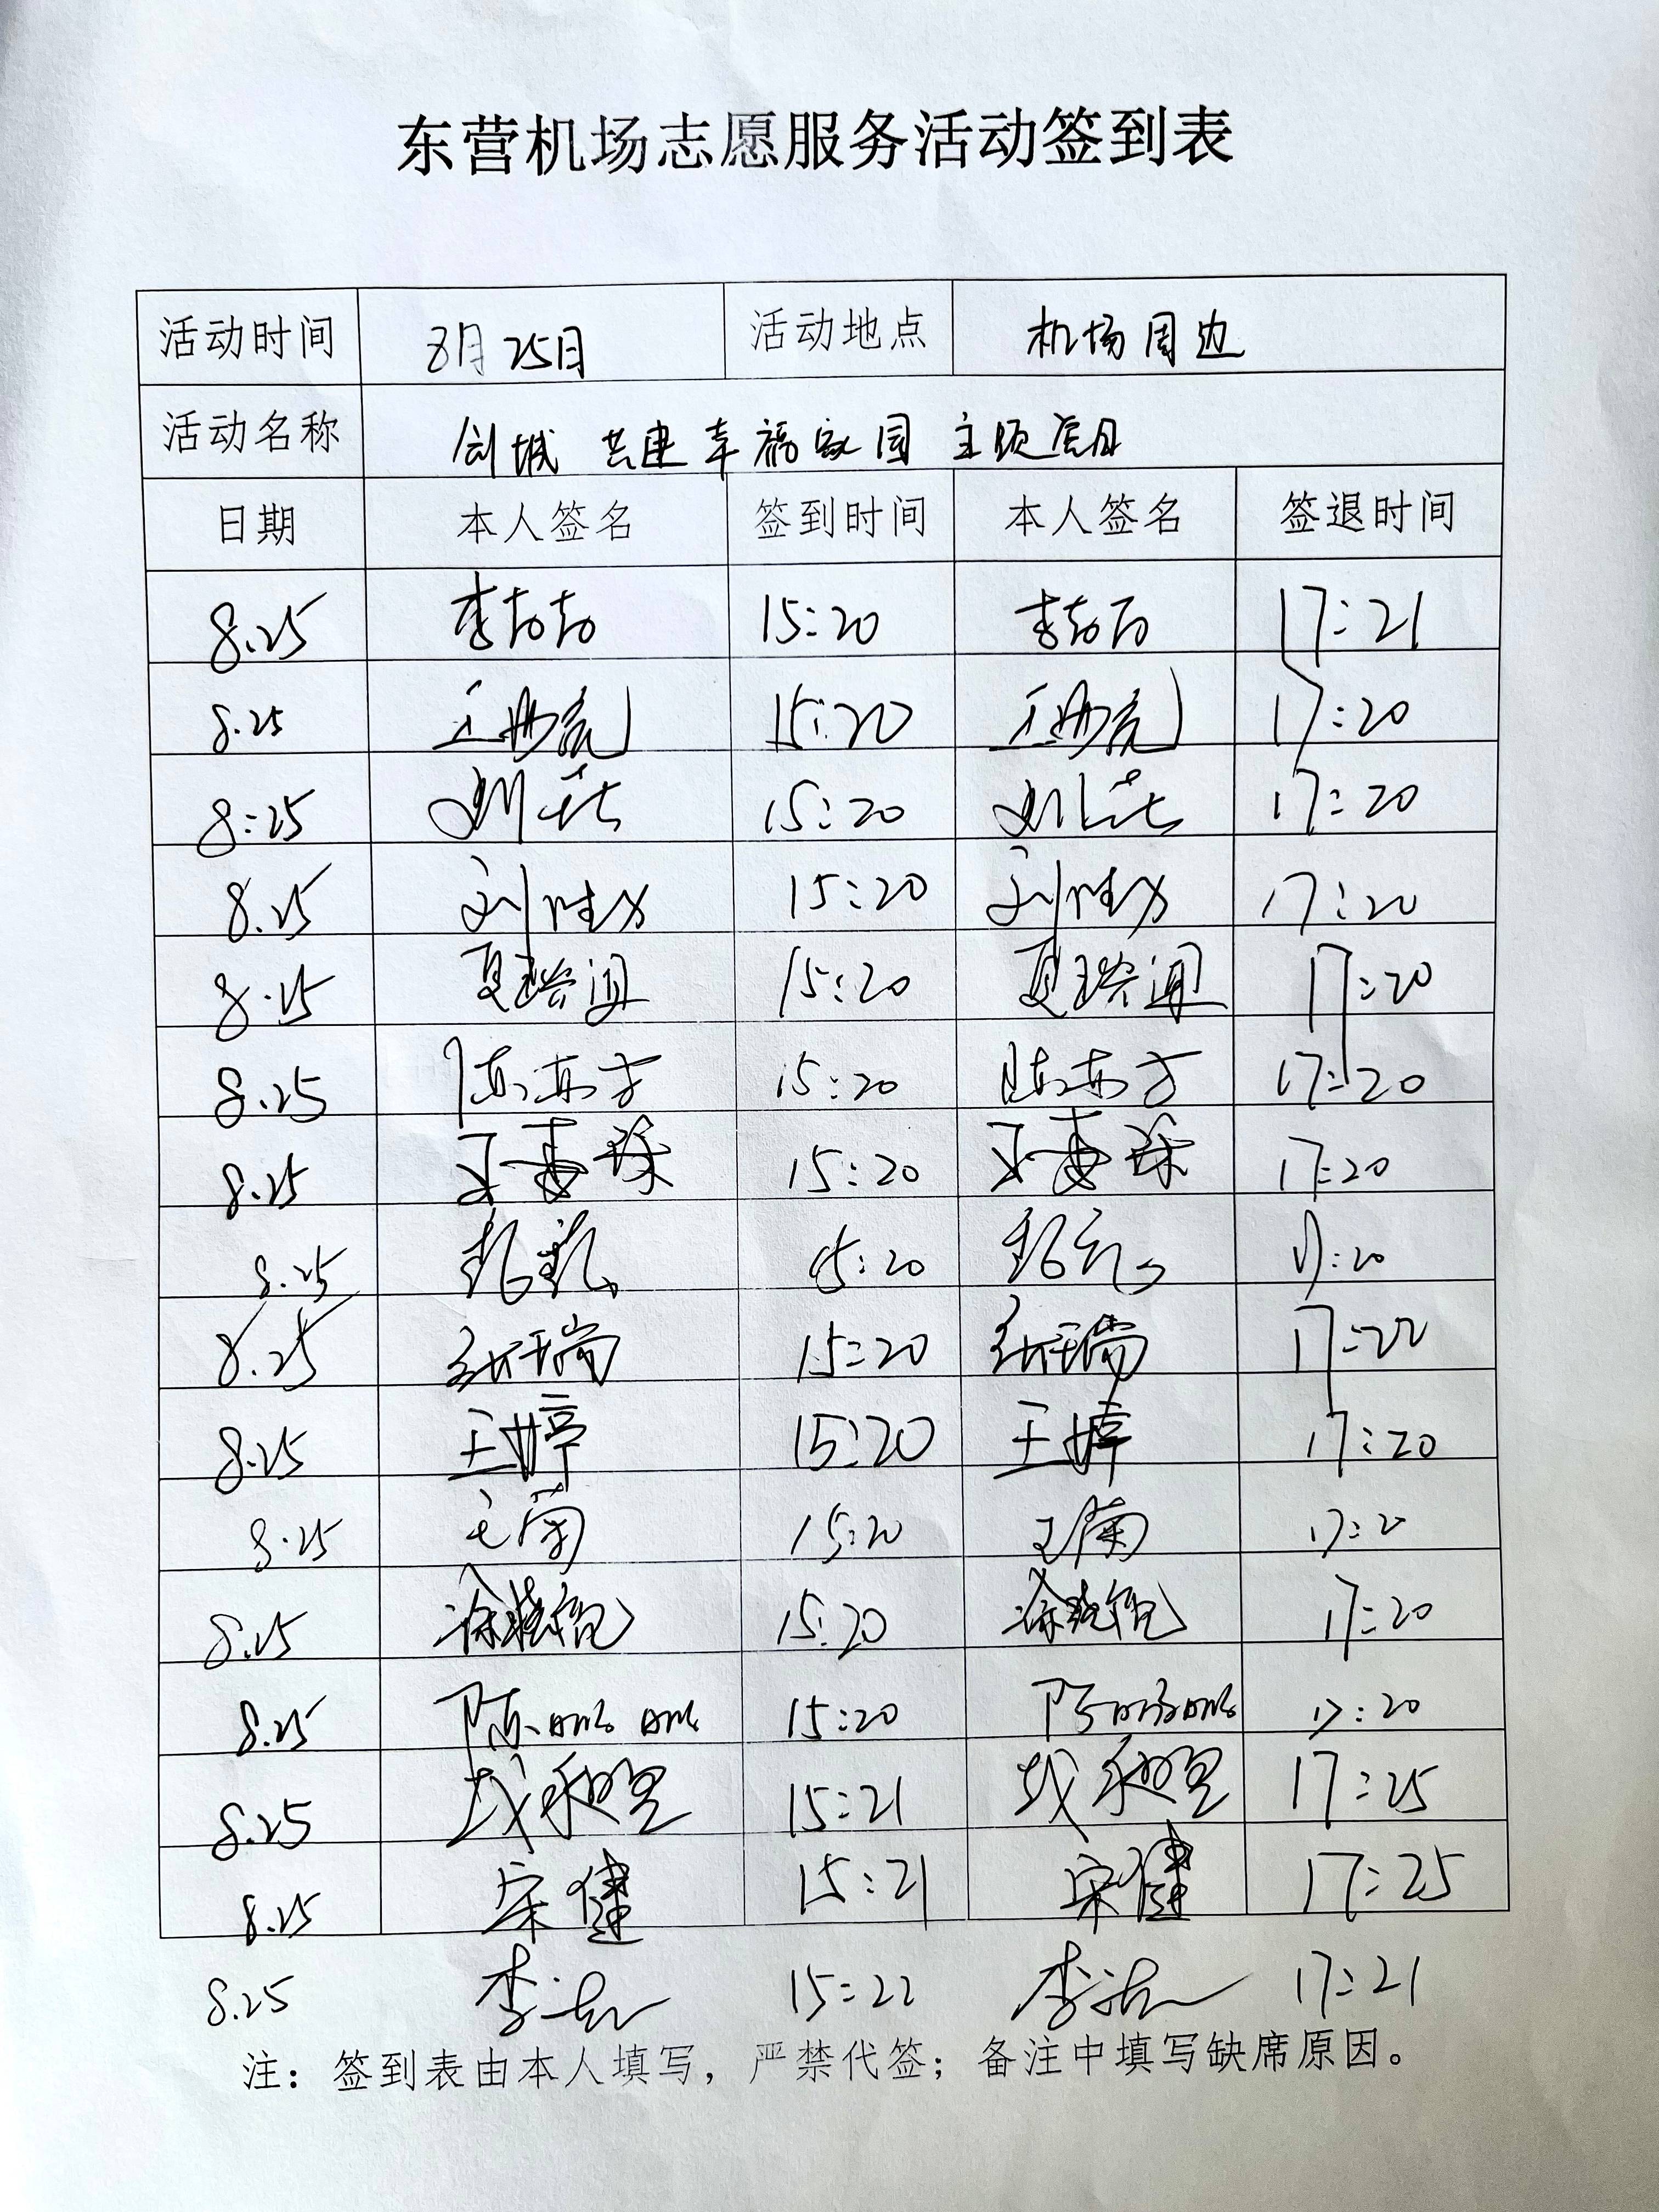 东营机场志愿服务活动签到表
活动时间 8月25日 活动地点 机场周边
活动名称 创城 共建幸福家园 主题党日
日期 本人签名 签到时间 本人签名 签退时间
8.25 李 15:20 李 17:21
8.25 王 15:20 王 17:20
8:25 刘 15:20 刘 17:20
8.25 刘 15:20 刘 17:20
8.25 夏 15:20 夏 17:20
8.25 陈 15:20 陈 17:20
8.25 王 15:20 王 17:20
8.25 15:20 17:20
8.25 瑞 15:20 瑞 17:22
8.25 王婷 15:20 王婷 17:20
8.25 15:20 王 17:20
8.25 徐 15:20 徐 17:20
8.25 陈 15:20 陈 17:20
8.25 15:21 17:25
8.25 宋健 15:21 宋健 17:25
8.25 李 15:22 李 17:21
注：签到表由本人填写，严禁代签；备注中填写缺席原因。